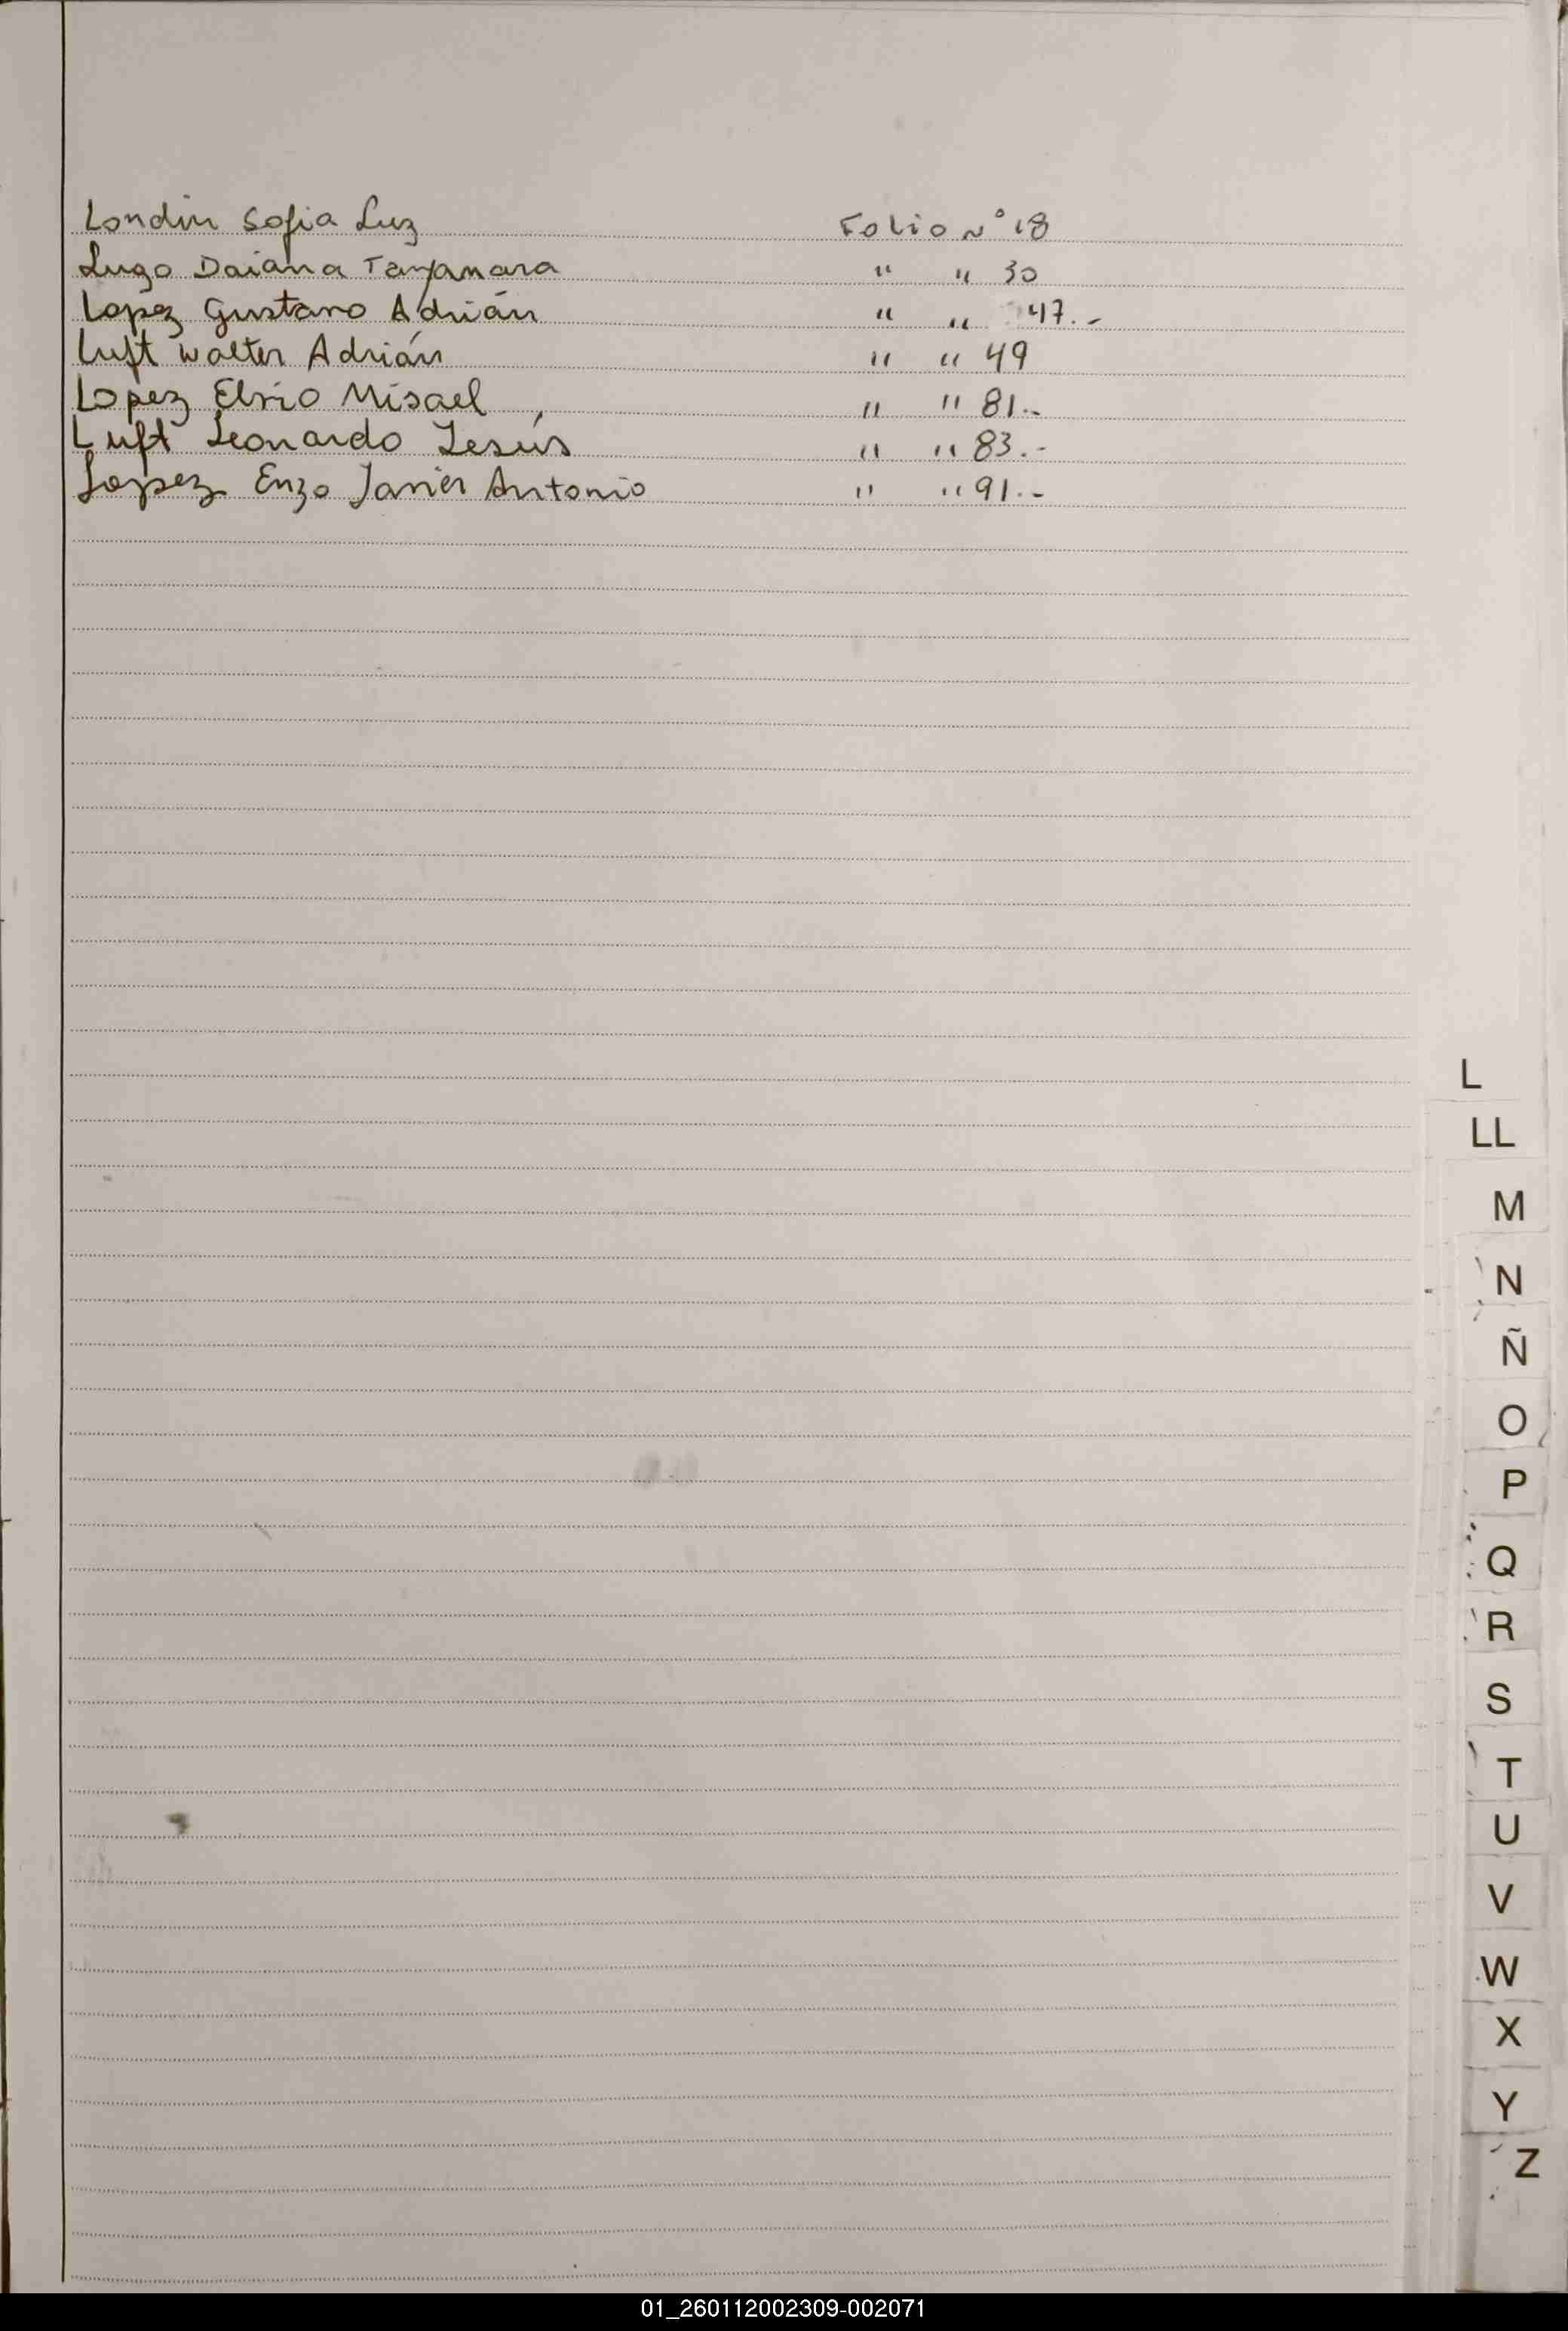 Londin Sofia Luz Folio N° 18
Lugo Daiana Tanyamara " " 30
Lopez Gustavo Adrián " " 47.-
Luft Walter Adrián " " 49
Lopez Elvio Misael " " 81.-
Luft Leonardo Jesús " " 83.-
Lopez Enzo Javier Antonio " " 91.-
L
LL
M
N
Ñ
O
P
Q
R
S
T
U
V
W
X
Y
Z
01_260112002309-002071